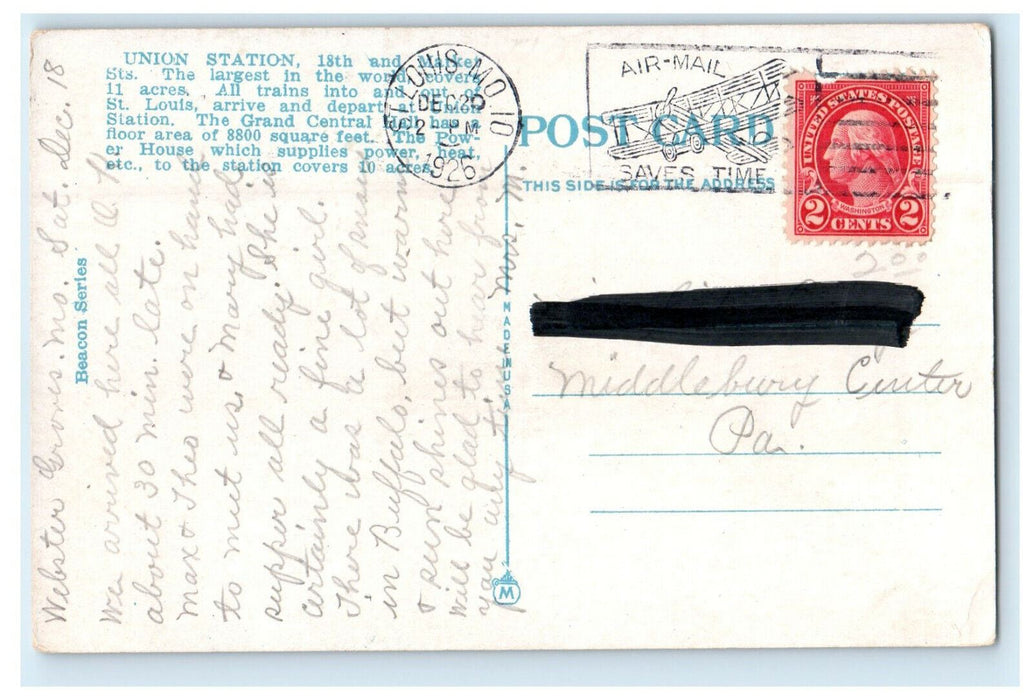 UNION STATION, 18th and Market
Sts. The largest in the world covers
11 acres. All trains into and out of
St. Louis, arrive and depart at Union
Station. The Grand Central Hall has a
floor area of 8800 square feet. The Pow-
er House which supplies power, heat,
etc., to the station covers 10 acres.
Beacon Series
Webster Groves. Mo. Sat. Dec. 18
We arrived here all O K
about 30 min. late.
Max & Theo were on hand
to meet us & Mary had
supper all ready. She is
certainly a fine girl.
There was a lot of snow
in Buffalo, but warm
& sun shines out here
will be glad to hear from
you any time Mrs. M.
MADE IN USA
M
ST. LOUIS, MO. 10
DEC 20
2 - PM
1926
AIR-MAIL
SAVES TIME
POST CARD
THIS SIDE IS FOR THE ADDRESS
UNITED STATES POSTAGE
WASHINGTON
2 CENTS 2
Middlebury Center
Pa.